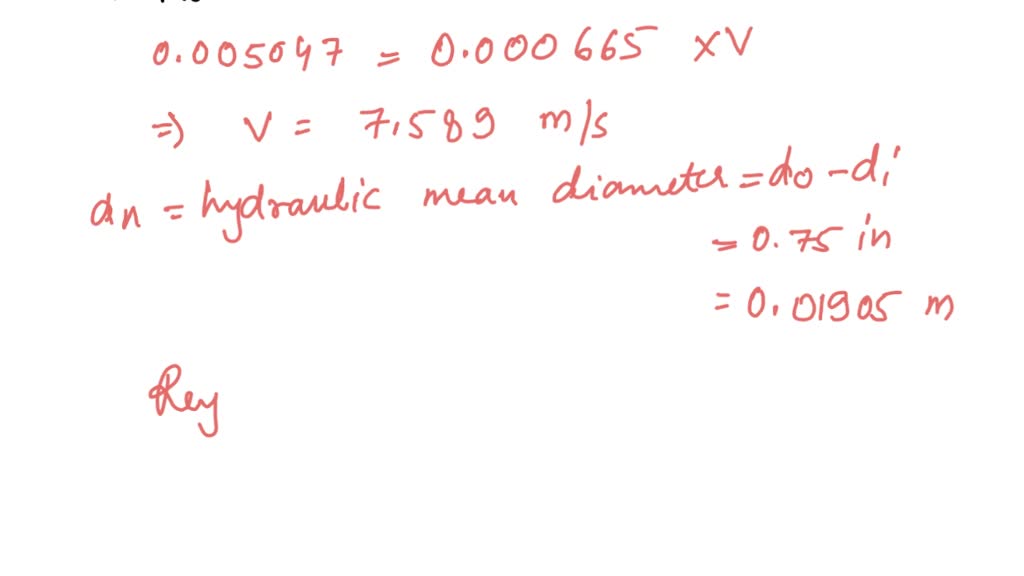 0.005047 = 0.000665 xV
=) V = 7.589 m/s
dn = hydraulic mean diameter = do - di
= 0.75 in
= 0.01905 m
Rey